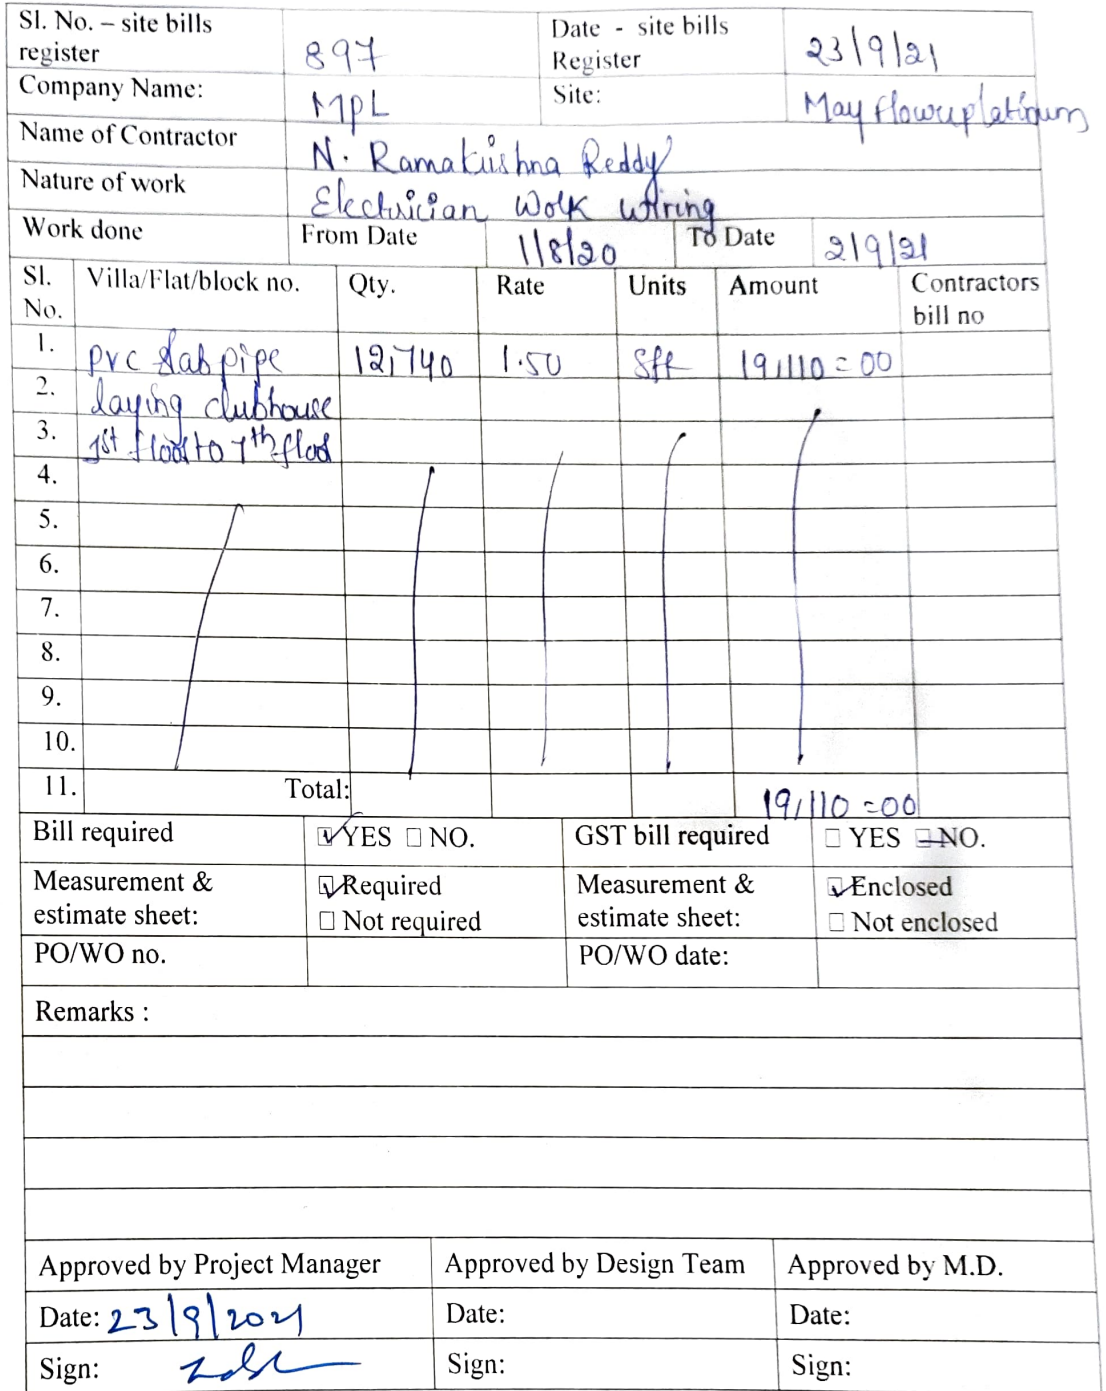 Sl. No. – site bills register 897 Date - site bills Register 23/9/21
Company Name: MPL Site: May flowerplatinum
Name of Contractor N. Ramakrishna Reddy
Nature of work Electrician Work wiring
Work done From Date 1/8/20 To Date 2/9/21
Sl. No. Villa/Flat/block no. Qty. Rate Units Amount Contractors bill no
1. pvc slab pipe 12,740 1.50 Sft 19,110=00
2. laying clubhouse
3. 1st floor to 7th floor
4.
5.
6.
7.
8.
9.
10.
11. Total: 19,110=00
Bill required ☑ YES ☐ NO. GST bill required ☐ YES ☐ NO.
Measurement & estimate sheet: ☑ Required ☐ Not required Measurement & estimate sheet: ☑ Enclosed ☐ Not enclosed
PO/WO no. PO/WO date:
Remarks :
Approved by Project Manager Approved by Design Team Approved by M.D.
Date: 23/9/2021 Date: Date:
Sign: Sign: Sign: